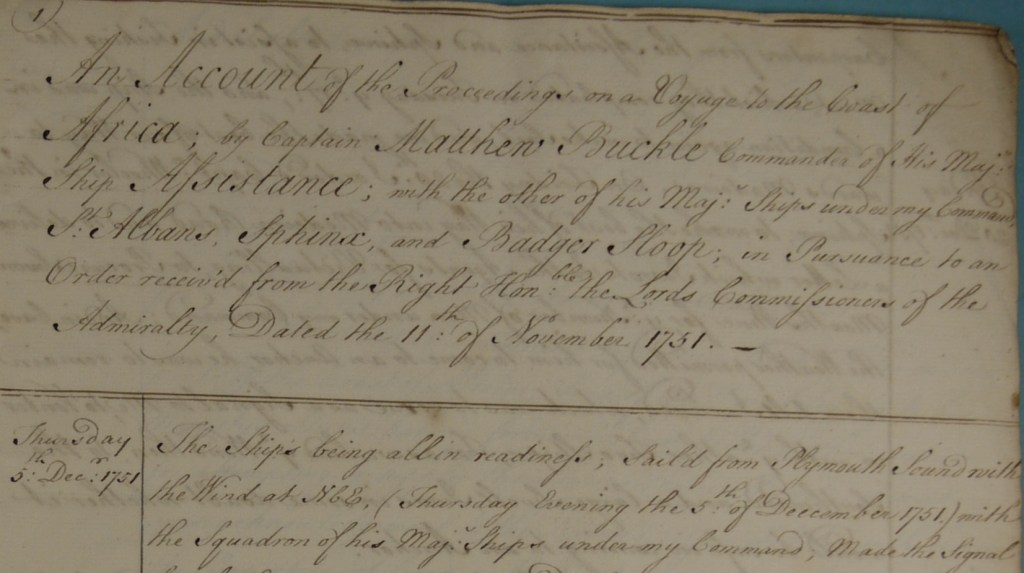 1)
An Account of the Proceedings on a Voyage to the Coast of
Africa; by Captain Matthew Buckle Commander of His Maj.s
Ship Assistance; with the other of his Maj.s Ships under my Command
St. Albans, Sphinx, and Badger Sloop; in Pursuance to an
Order receiv'd from the Right Hon.ble the Lords Commissioners of the
Admiralty, Dated the 11.th of November 1751. —
Thursday
5.th Dec.r 1751
The Ships being all in readiness; Sail'd from Plymouth Sound with
the Wind at NbE, (Thursday Evening the 5.th of Deecember 1751) with
the Squadron of his Maj.s Ships under my Command, Made the Signal